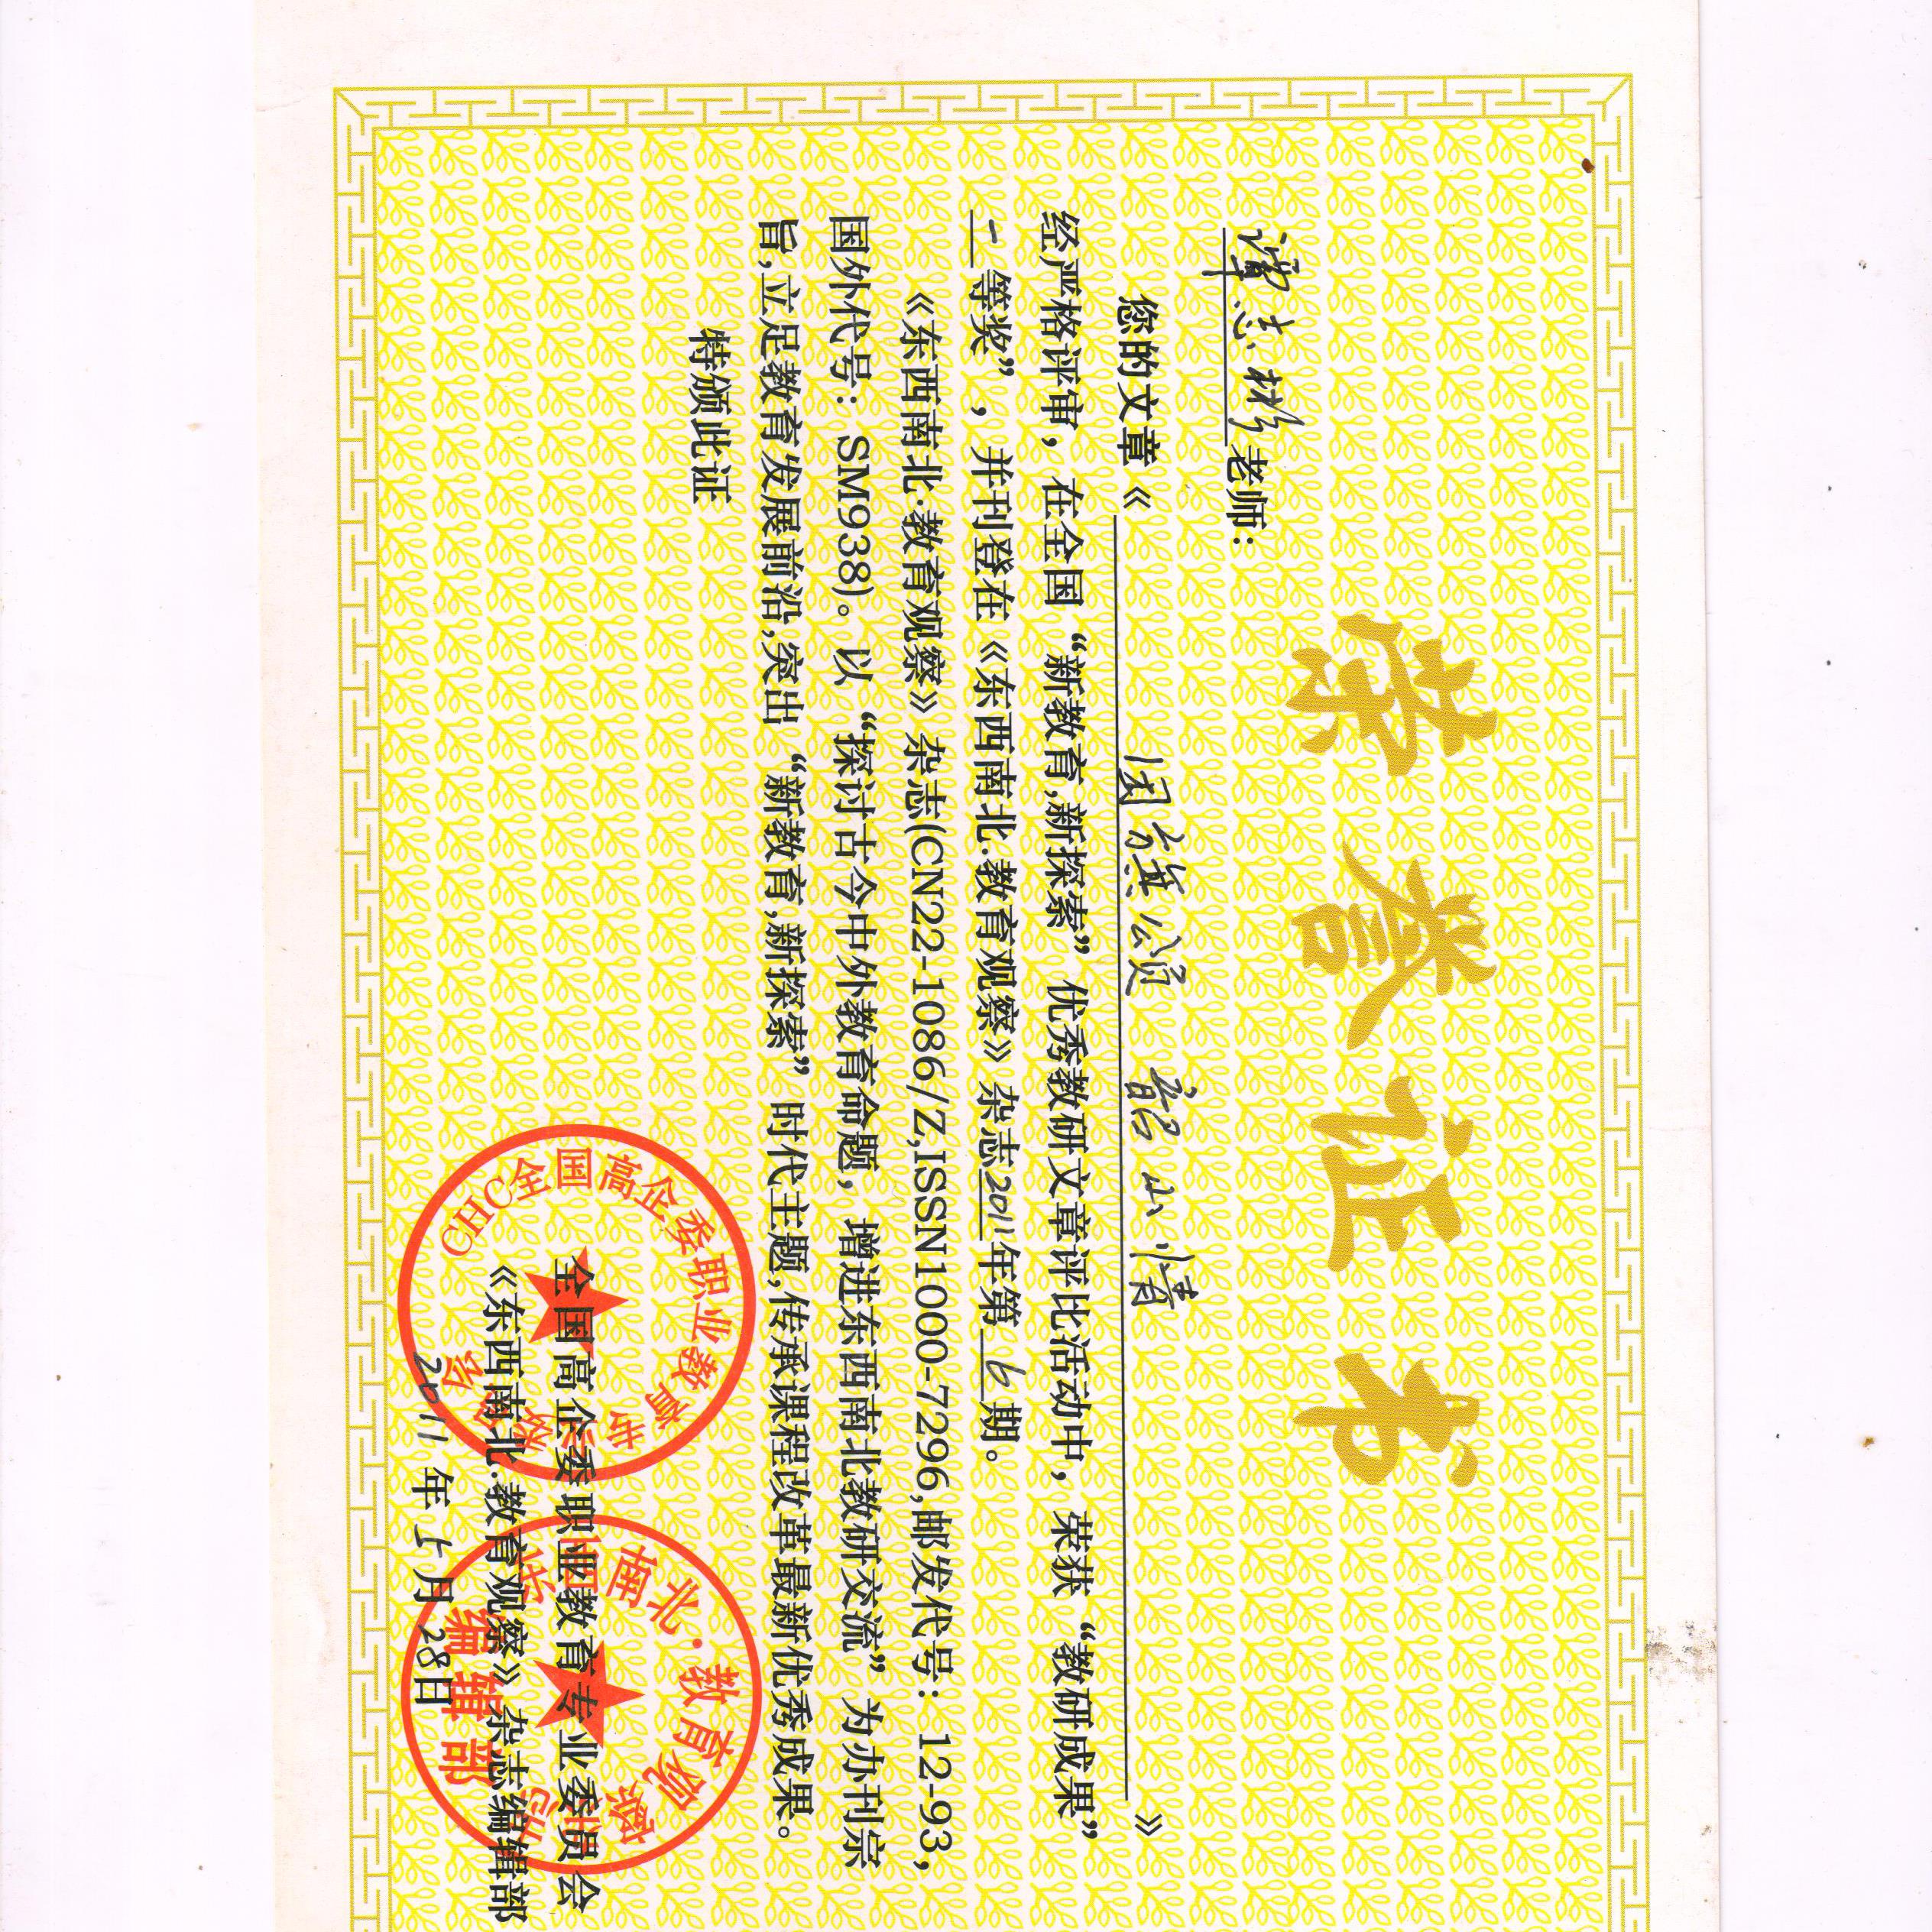 荣誉证书
谭志彬老师：
您的文章《 国旗公颂 韶山情 》
经严格评审，在全国“新教育,新探索”优秀教研文章评比活动中，荣获“教研成果”
一等奖”，并刊登在《东西南北.教育观察》杂志2011年第6期。
《东西南北·教育观察》杂志(CN22-1086/Z,ISSN1000-7296,邮发代号：12-93,
国外代号：SM938)。以“探讨古今中外教育命题，增进东西南北教研交流”为办刊宗
旨,立足教育发展前沿,突出“新教育,新探索”时代主题,传承课程改革最新优秀成果。
特颁此证
全国高企委职业教育专业委员会
《东西南北.教育观察》杂志编辑部
2011年5月28日
CHC全国高企委职业教育专业委员会
东西南北·教育观察杂志
编辑部